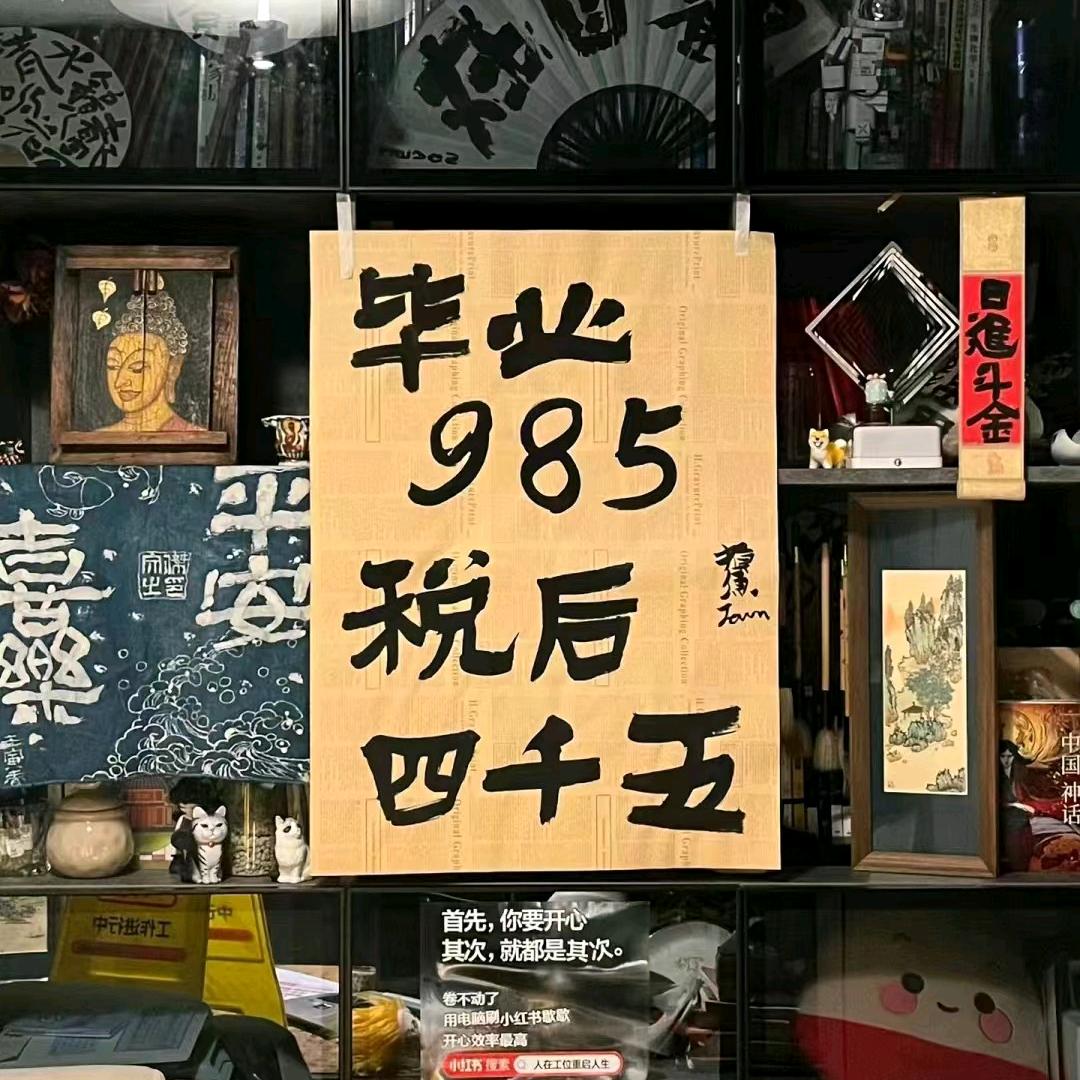 毕业
985
税后
四千五
Jain
日進斗金
平安
喜樂
中国神话
工作进行中
首先，你要开心
其次，就都是其次。
卷不动了
用电脑刷小红书歇歇
开心效率最高
小红书 搜索 人在工位重启人生